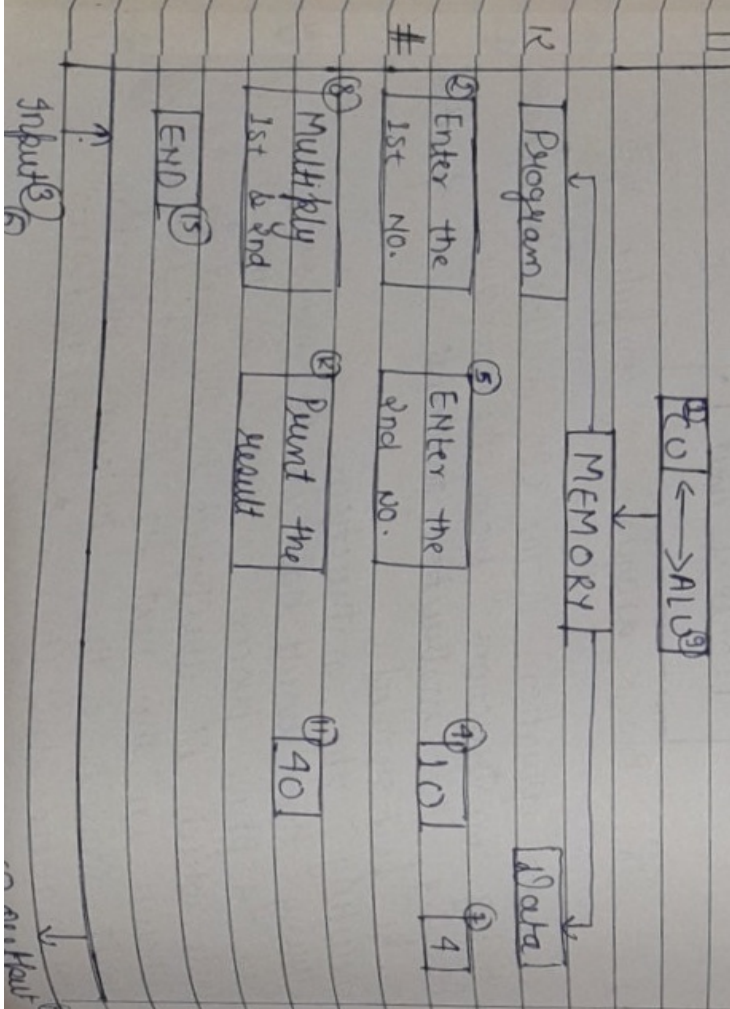 ① CU ⟷ ALU ⑨
MEMORY
Program
Data
② Enter the
Ist No.
⑤ ENter the
2nd No.
④ 10
⑦ 4
⑧ Multiply
Ist & 2nd
⑫ Print the
result
⑪ 40
END ⑮
Input ③
⑥